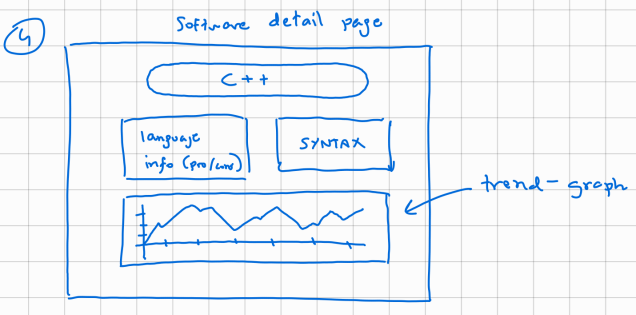 4
Software detail page
C++
language
info (pro/cons)
SYNTAX
trend-graph